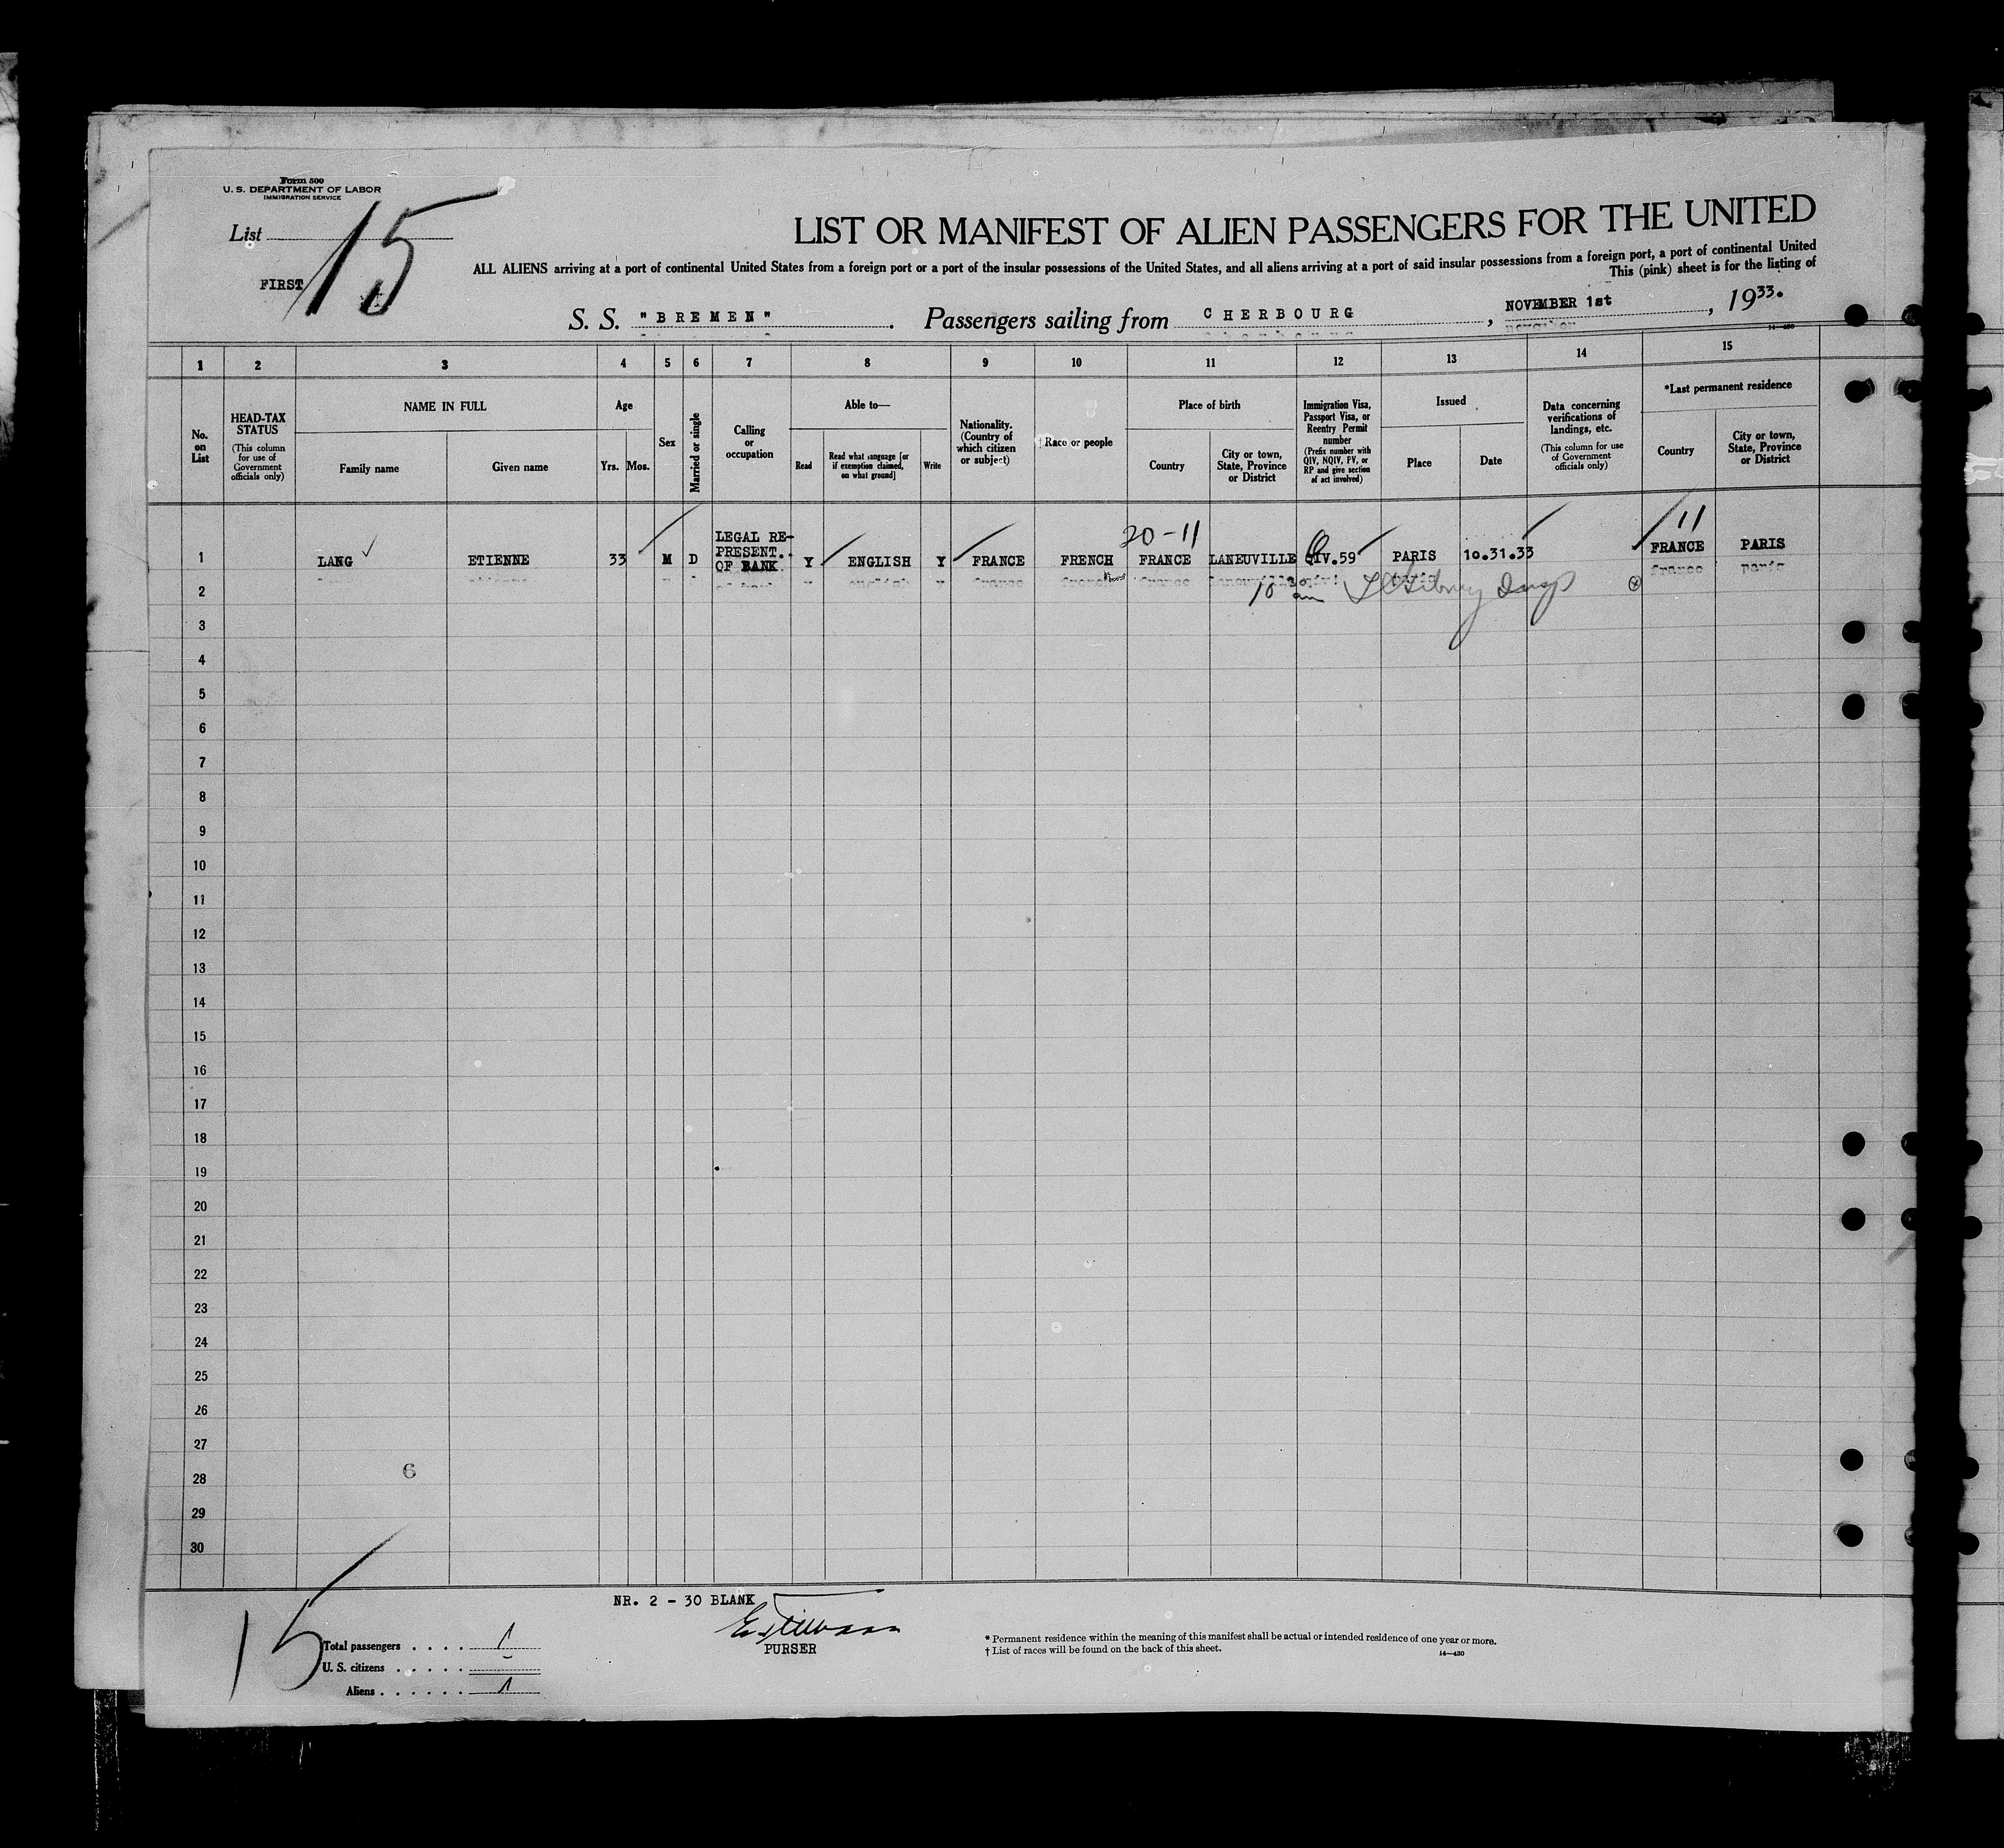 Form 500
U. S. DEPARTMENT OF LABOR
IMMIGRATION SERVICE
List 15
FIRST
LIST OR MANIFEST OF ALIEN PASSENGERS FOR THE UNITED
ALL ALIENS arriving at a port of continental United States from a foreign port or a port of the insular possessions of the United States, and all aliens arriving at a port of said insular possessions from a foreign port, a port of continental United
This (pink) sheet is for the listing of
S. S. "BREMEN". Passengers sailing from CHERBOURG, NOVEMBER 1st, 1933.
14—430
1 2 3 4 5 6 7 8 9 10 11 12 13 14 15
No. on List
HEAD-TAX STATUS (This column for use of Government officials only)
NAME IN FULL
Family name
Given name
Age
Yrs. Mos.
Sex
Married or single
Calling or occupation
Able to—
Read
Read what language [or if exemption claimed, on what ground]
Write
Nationality. (Country of which citizen or subject)
† Race or people
Place of birth
Country
City or town, State, Province or District
Immigration Visa, Passport Visa, or Reentry Permit number (Prefix number with QIV, NQIV, PV, or RP and give section of act involved)
Issued
Place
Date
Data concerning verifications of landings, etc. (This column for use of Government officials only)
*Last permanent residence
Country
City or town, State, Province or District
20-11
11
1 LANG ETIENNE 33 M D LEGAL RE-PRESENT. OF BANK Y ENGLISH Y FRANCE FRENCH FRANCE LANEUVILLE QIV.59 PARIS 10.31.33 FRANCE PARIS
2 10 30 am
3
4
5
6
7
8
9
10
11
12
13
14
15
16
17
18
19
20
21
22
23
24
25
26
27
28 6
29
30
NR. 2 - 30 BLANK
PURSER
15
Total passengers . . . . 1
U. S. citizens . . . . . . -
Aliens . . . . . . . 1
* Permanent residence within the meaning of this manifest shall be actual or intended residence of one year or more.
† List of races will be found on the back of this sheet.
14—430